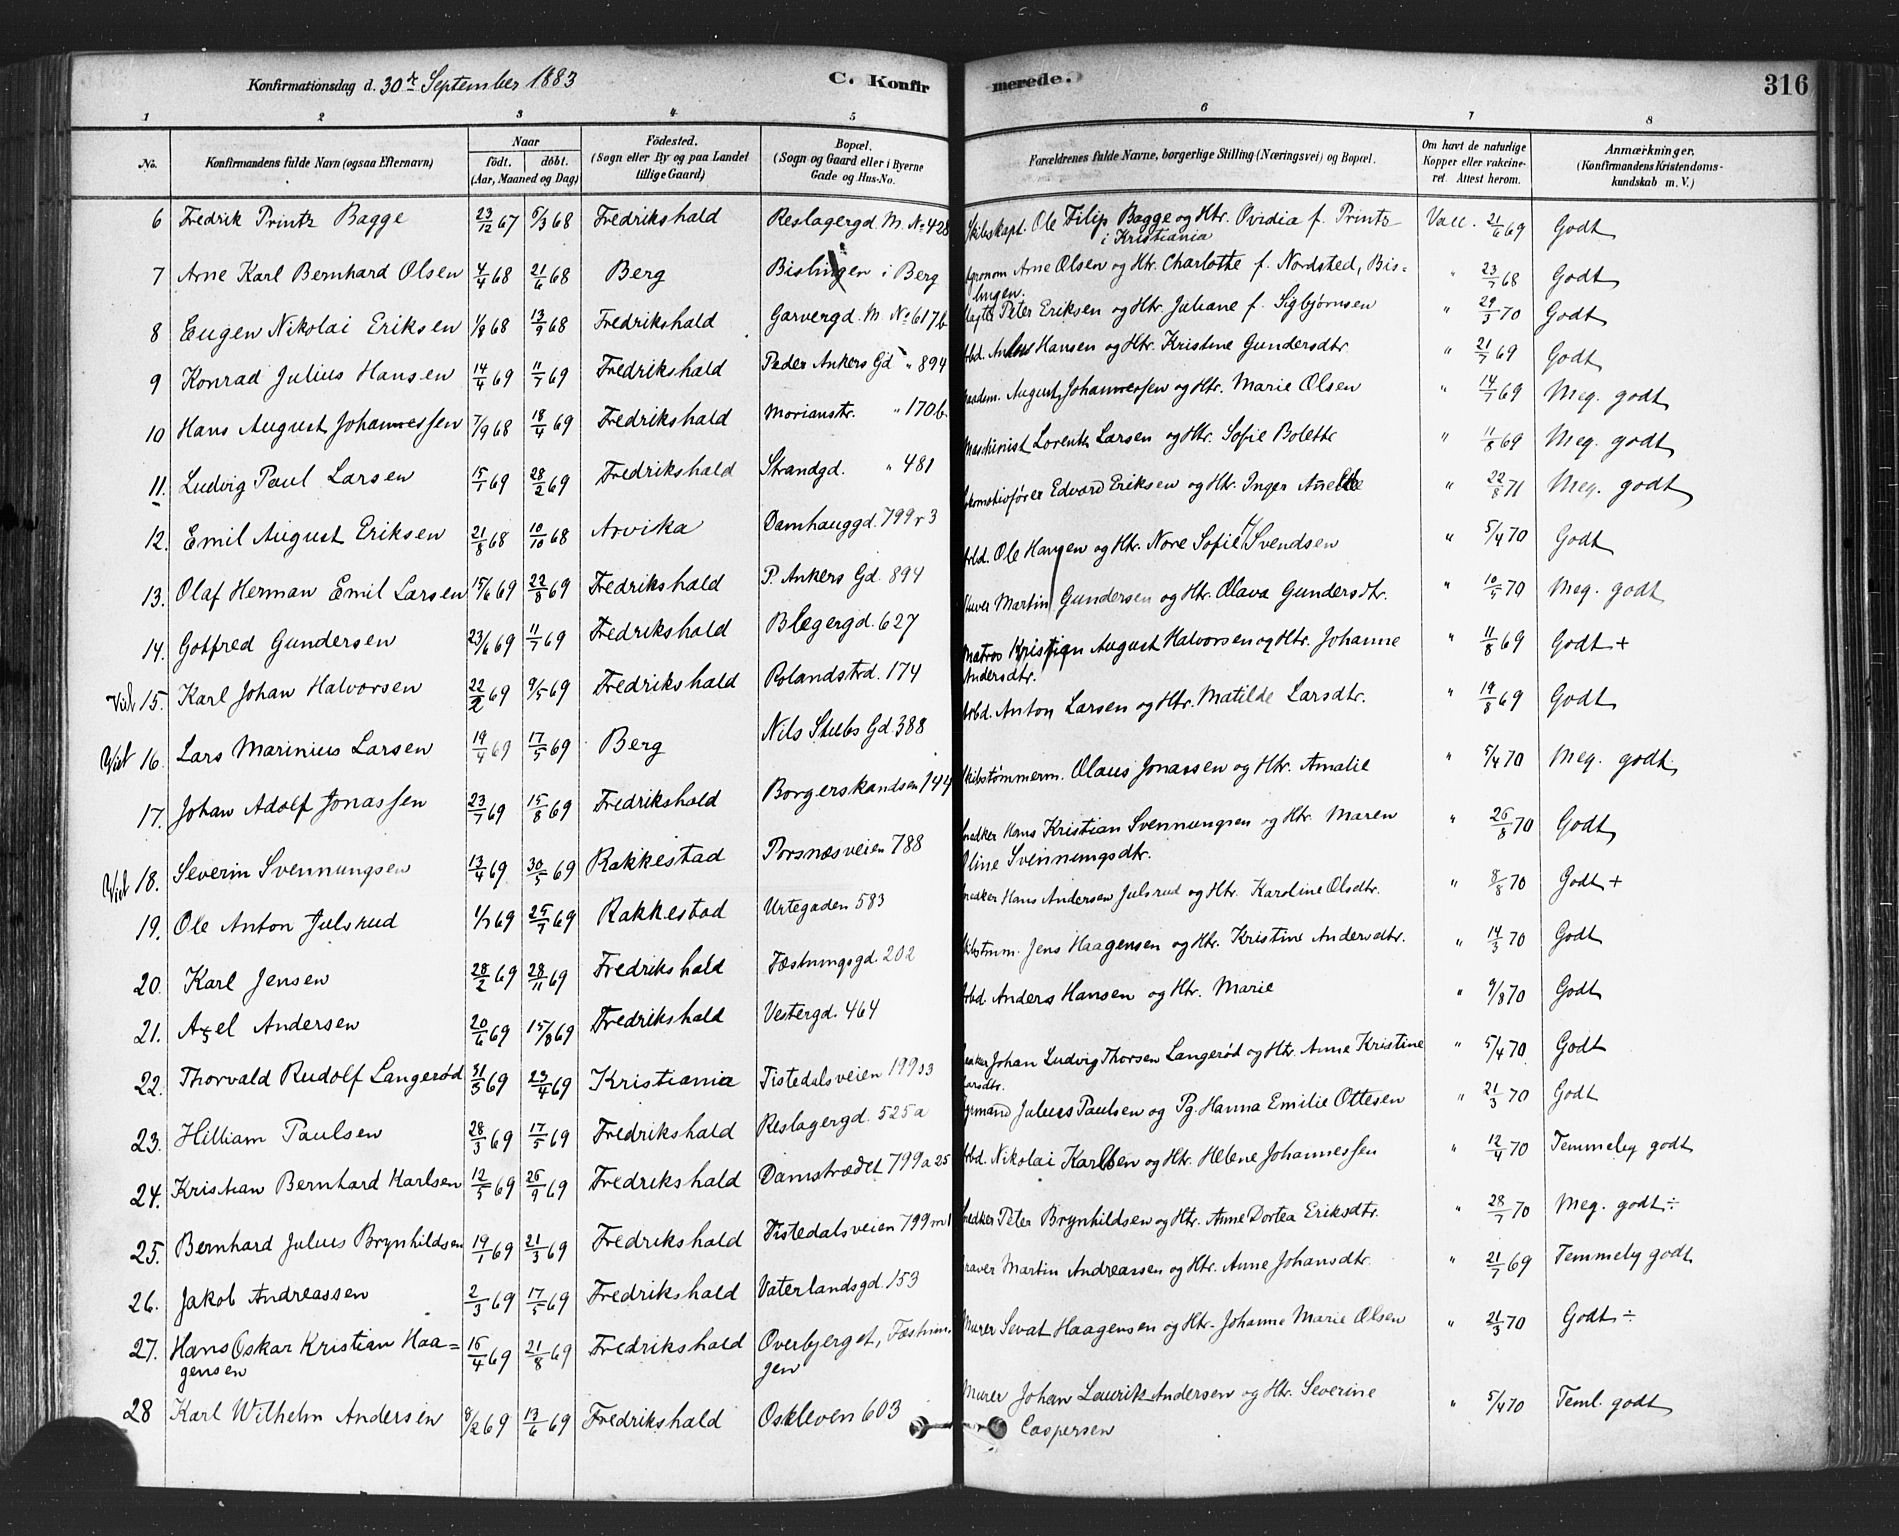 Konfirmationsdag d. 30te September 1883 C. Konfirmerede. 316
1 2 3 4 5 6 7 8
No. Konfirmandens fulde Navn (ogsaa Efternavn) Naar födt. döbt. (Aar, Maaned og Dag) Födested. (Sogn eller By og paa Landet tillige Gaard) Bopæl. (Sogn og Gaard eller i Byerne Gade og Hus-No. Forældrenes fulde Navne, borgerlige Stilling (Næringsvei) og Bopæl. Om havt de naturlige Kopper eller vakcineret. Attest herom. Anmærkninger. (Konfirmandens Kristendomskundskab m. V.)
6 Fredrik Printz Bagge 23/12 67 5/3 68 Fredrikshald Reslagergd. M. No 428 Skibskapt. Ole Filip Bagge og Htr. Ovidia f. Printz i Kristiania Vacc. 21/6 69 Godt
7 Arne Karl Bernhard Olsen 4/4 68 21/6 68 Berg Bislingen i Berg Agronom Arne Olsen og Htr. Charlotte f. Nordsted, Bislingen. " 23/7 68 Godt
8 Eugen Nikolai Eriksen 1/8 68 13/9 68 Fredrikshald Garvergd. M. No 617b Peter Eriksen og Htr. Juliane f. Sigbjørnsen " 29/3 70 Godt
9 Konrad Julius Hansen 14/4 69 11/7 69 Fredrikshald Peder Ankers Gd " 894 Arbd. Hansen og Htr. Kristine Gundersdtr. " 21/7 69 Godt
10 Hans August Johannessen 7/9 68 18/4 69 Fredrikshald Morianstr. " 170b. August Johannessen og Htr. Marie Olsen " 14/7 69 Meg. godt
11. Ludvig Paul Larsen 15/1 69 28/2 69 Fredrikshald Strandgd. " 481 Maschinist Lorentz Larsen og Htr. Sofie Bolette " 11/8 69 Meg. godt
12. Emil August Eriksen 21/8 68 10/10 68 Arvika Damhauggd. 799 r 3 Lokomotivfører Edvard Eriksen og Htr. Inger Anette " 22/8 71 Meg. godt
13. Olaf Herman Emil Larsen 15/6 69 22/8 69 Fredrikshald P. Ankers Gd. 894 Arbd. Ole Hansen og Htr. Nore Sofie Svendsen " 5/4 70 Godt
14. Gotfred Gundersen 23/6 69 11/7 69 Fredrikshald Blegergd. 627 Martin Gundersen og Htr. Olava Gundersdtr. " 10/5 70 Meg. godt
Viet 15. Karl Johan Halvorsen 22/2 69 9/5 69 Fredrikshald Rolandstrd. 174 Matros Kristian August Halvorsen og Htr. Johanne Andersdtr. " 11/8 69 Godt +
Viet 16. Lars Marinius Larsen 19/4 69 17/5 69 Berg Nils Stubs Gd 388 Arbd. Anton Larsen og Htr. Matilde Larsdtr. " 19/8 69 Godt
17. Johan Adolf Jonassen 23/7 69 15/8 69 Fredrikshald Borgerskandsen 144 Skibstømmerm. Olaus Jonassen og Htr. Amalie " 5/4 70 Meg. godt.
Viet 18. Severin Svennungsen 13/4 69 30/5 69 Rakkestad Porsnæsveien 788 Snedker Hans Kristian Svennungsen og Htr. Maren Oline Svennungsdtr. " 26/8 70 Godt
19. Ole Anton Julsrud 1/7 69 25/7 69 Rakkestad Urtegaden 583 Snedker Hans Andersen Julsrud og Htr. Karoline Olsdtr. " 8/8 70 Godt +
20. Karl Jensen 28/2 69 28/11 69 Fredrikshald Fæstningsgd. 202 Jens Haagensen og Htr. Kristine Andersdtr. " 14/3 70 Godt
21. Axel Andersen 20/6 69 15/8 69 Fredrikshald Vestergd. 464 Arbd Anders Hansen og Htr. Marie " 9/8 70 Godt
22. Thorvald Rudolf Langerød 31/3 69 23/4 69 Kristiania Tistedalsveien 199 s3 Johan Ludvig Thorsen Langerød og Htr. Anne Kristine Larsdtr. " 5/4 70 Godt
23. Hilliam Paulsen 28/3 69 17/5 69 Fredrikshald Reslagergd. 525a Julius Paulsen og Pg. Hanna Emilie Ottesen " 21/3 70 Godt
24. Kristian Bernhard Karlsen 12/5 69 26/9 69 Fredrikshald Damstrædet 799a 25 Arbd. Nikolai Karlsen og Htr. Helene Johannessen " 12/4 70 Temmeleg godt
25. Bernhard Julius Brynhildsen 19/1 69 21/3 69 Fredrikshald Tistedalsveien 799m1 Snedker Peter Brynhildsen og Htr. Anne Dortea Eriksdtr. " 28/7 70 Meg. godt ÷
26. Jakob Andreassen 2/3 69 17/5 69 Fredrikshald Vaterlandsgd. 153 Martin Andreassen og Htr. Anne Johansdtr. " 21/7 69 Temmeleg godt
27. Hans Oskar Kristian Haagensen 16/4 69 21/8 69 Fredrikshald Overbjerget, Fæstningen Murer Sevat Haagensen og Htr. Johanne Marie Olsen " 21/3 70 Godt ÷
28 Karl Wilhelm Andersen 8/2 69 13/6 69 Fredrikshald Oskleven 603 Murer Johan Laurits Andersen og Htr. Severine Caspersen " 5/4 70 Teml. godt